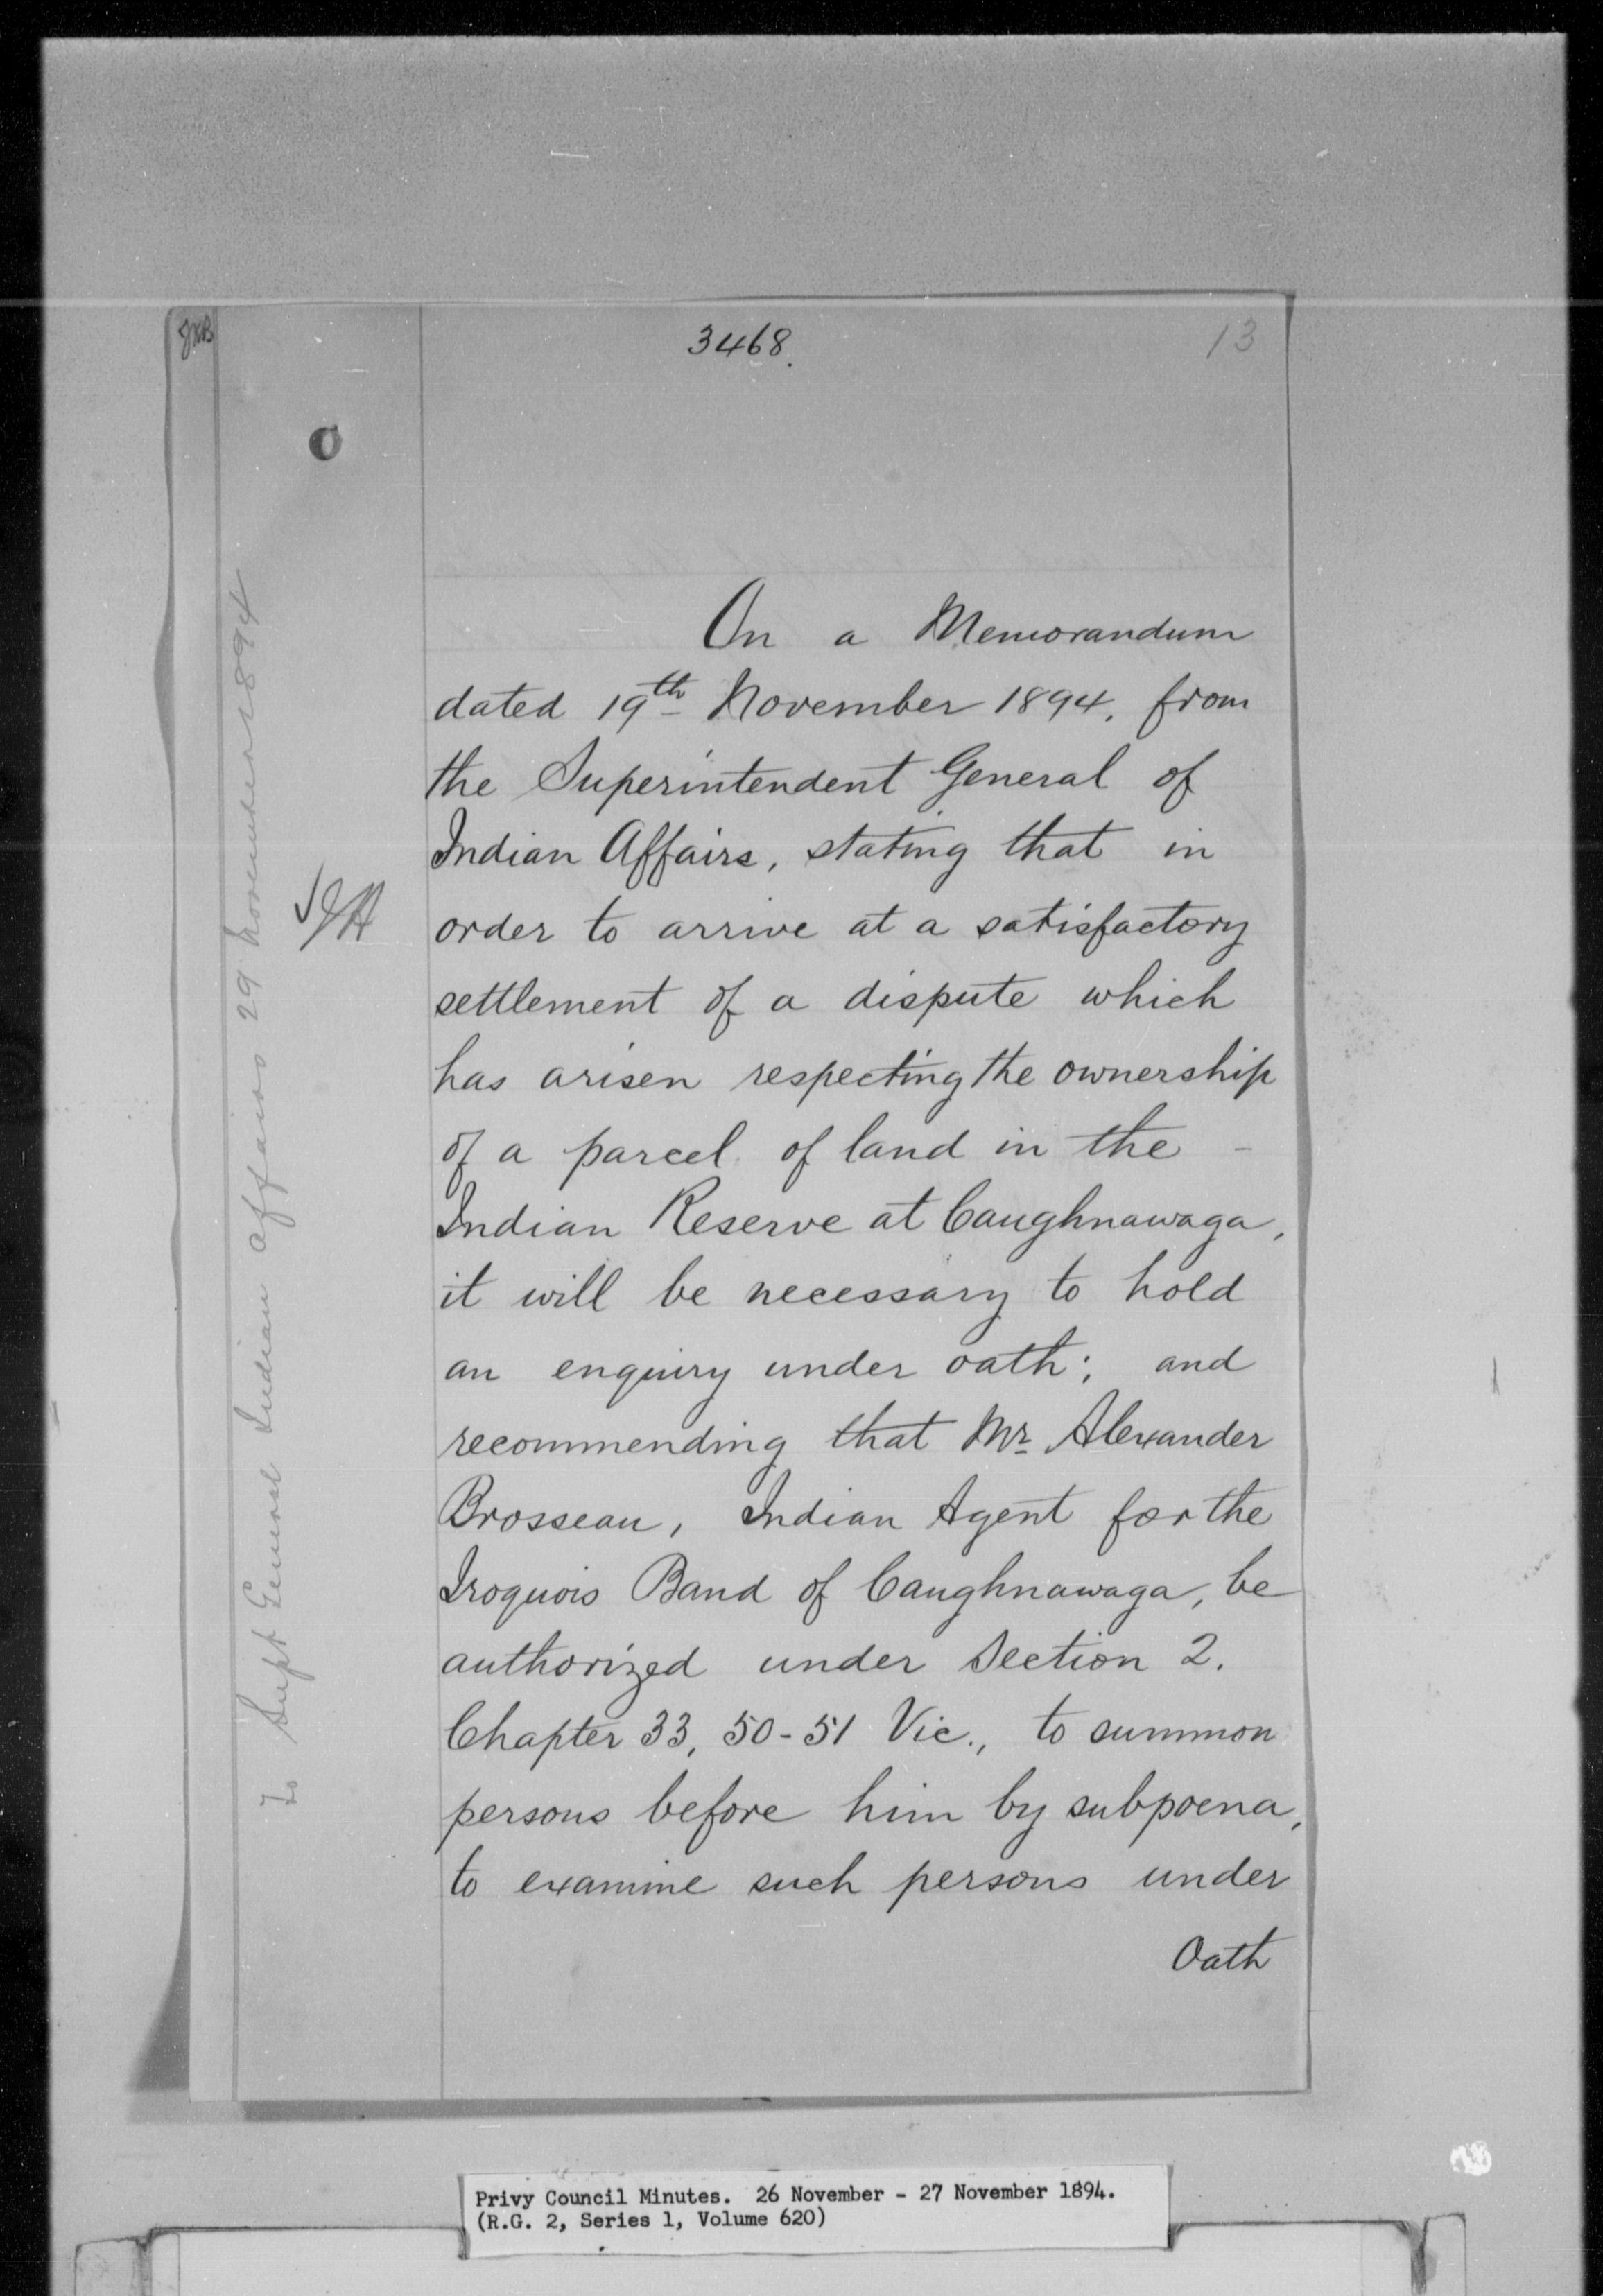 3468.
13
On a Memorandum
dated 19th November 1894, from
the Superintendent General of
Indian Affairs, stating that in
order to arrive at a satisfactory
settlement of a dispute which
has arisen respecting the ownership
of a parcel of land in the -
Indian Reserve at Caughnawaga,
it will be necessary to hold
an enquiry under oath; and
recommending that Mr Alexander
Brosseau, Indian Agent for the
Iroquois Band of Caughnawaga, be
authorized under Section 2.
Chapter 33, 50-51 Vic., to summon
persons before him by subpoena,
to examine such persons under
Oath
To Supt General Indian Affairs 29 November 1894
Privy Council Minutes. 26 November - 27 November 1894.
(R.G. 2, Series 1, Volume 620)